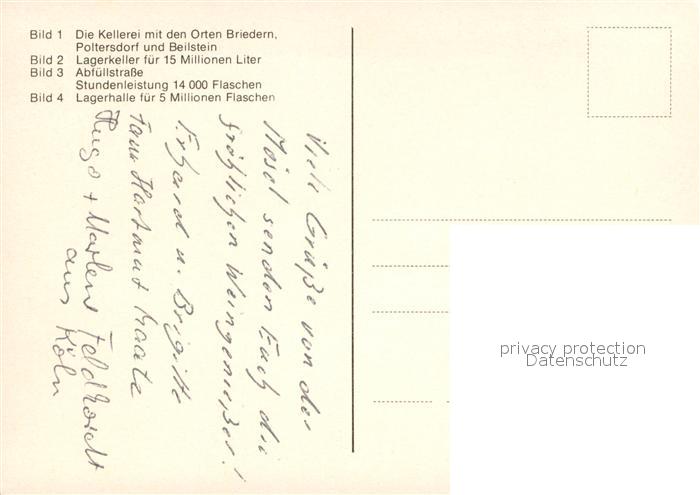 Bild 1 Die Kellerei mit den Orten Briedern,
Poltersdorf und Beilstein
Bild 2 Lagerkeller für 15 Millionen Liter
Bild 3 Abfüllstraße
Stundenleistung 14 000 Flaschen
Bild 4 Lagerhalle für 5 Millionen Flaschen
Viele Grüße von der
Mosel senden Euch die
fröhlichen Weingenießer!
Erhard u. Brigitte
Fam Hartmut
Hugo + Marlene
aus Köln
privacy protection
Datenschutz